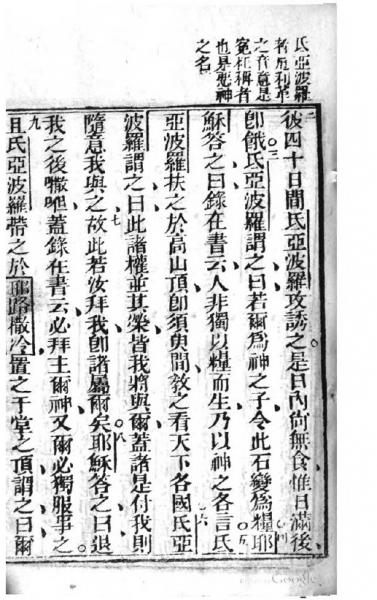 氐亞波羅
者厄利革
之音意是
冤枉稱者
也是惡神
之名
二彼四十日間氐亞波羅攻誘之是日內尚無食惟日滿後
三即餓氐亞波羅謂之曰若爾為神之子令此石變為糧耶四
穌答之曰錄在書云人非獨以糧而生乃以神之各言氐五
亞波羅扶之於高山頂即須臾間教之看天下各國氐亞六
波羅謂之曰此諸權並其榮皆我將與爾蓋諸是付我則
隨意我與之故此若汝拜我即諸屬爾矣耶穌答之曰退七八
我之後𠿕吔蓋錄在書云必拜王爾神又爾必獨服事之
九且氐亞波羅帶之於耶路撒冷置之于堂之頂謂之曰爾
Google